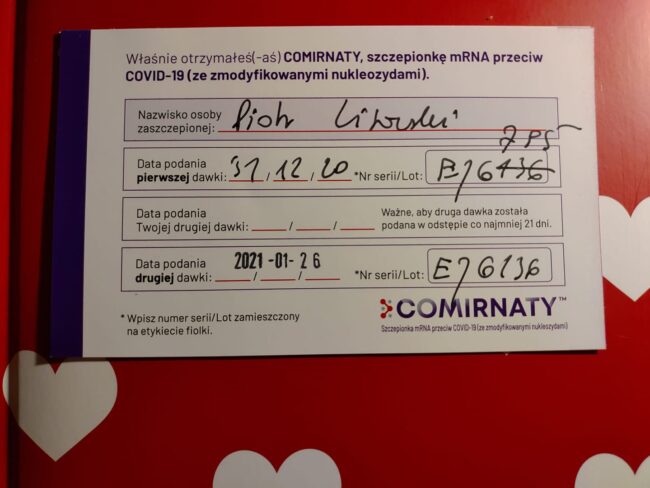 Właśnie otrzymałeś(-aś) COMIRNATY, szczepionkę mRNA przeciw
COVID-19 (ze zmodyfikowanymi nukleozydami).
Nazwisko osoby
zaszczepionej: Piotr
Data podania
pierwszej dawki: 31 / 12 / 20 *Nr serii/Lot:
Data podania
Twojej drugiej dawki: / /
Ważne, aby druga dawka została
podana w odstępie co najmniej 21 dni.
Data podania
drugiej dawki: 2021-01-26 / / *Nr serii/Lot: EJ6136
* Wpisz numer serii/Lot zamieszczony
na etykiecie fiolki.
COMIRNATY™
Szczepionka mRNA przeciw COVID-19 (ze zmodyfikowanymi nukleozydami)